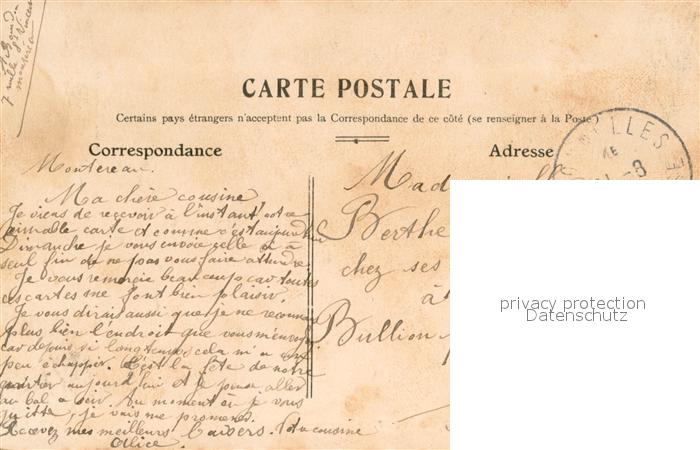 CARTE POSTALE
Certains pays étrangers n'acceptent pas la Correspondance de ce côté (se renseigner à la Poste)
Correspondance
Adresse
Montereau.
Ma chère cousine
Je viens de recevoir à l'instant votre
aimable carte et comme c'est aujourd'hui
Dimanche je vous envoie celle ci à
seul fin de ne pas vous faire attendre.
Je vous remercie beaucoup car toutes
ces cartes me font bien plaisir.
Je vous dirais aussi que je ne reconnais
plus bien l'endroit que vous m'envoyez
car depuis si longtemps cela m'a
peu échapper. C'est la fête de notre
quartier aujourd'hui et je peux aller
au bal ce soir. Au moment où je vous
quitte, je vais me promener.
Recevez mes meilleurs baisers. Votre cousine
Alice.
Mad
Berthe
chez ses
à
Bullion
LLES
8
privacy protection
Datenschutz